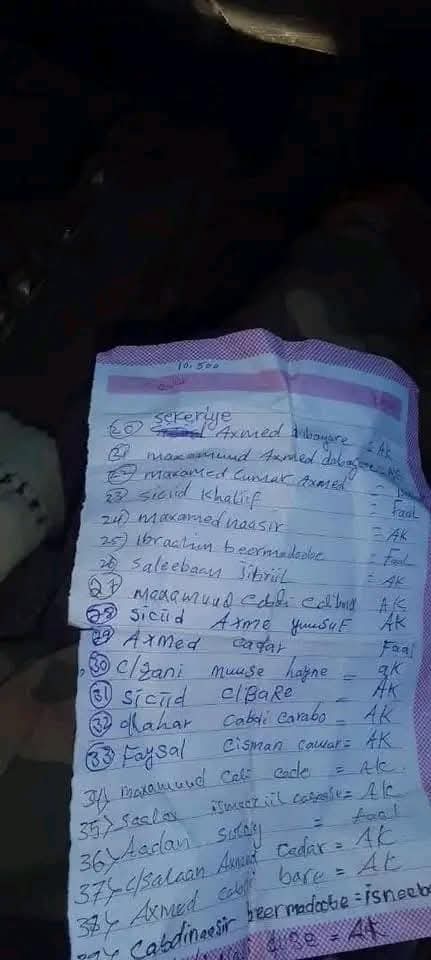 10.500
20) sekeriye Axmed = AK
21) maxamuud Axmed
22) maxamed Cumar Axmed =
23 siciid Khaliif = Faal
24) maxamed naasir = AK
25) ibraahim beermadoobe = Faal
26 saleebaan Jibriil = AK
27 maxamuud Cabdi AK
28 siciid Axme yuusuf AK
29 Axmed Cadar Faal
30 C/gani muuse = aK
31 siciid C/BaRe = AK
32 dhahar Cabdi Carabo = AK
33 Faysal Cisman = AK
34 maxamuud Cali = AK
35> ismaciil = AK
36> Aadan = Faal
37> C/salaan Axmed Cadar = AK
38> Axmed Cabdi bare = AK
Cabdinaasir beermadoobe = isneeb
= AK